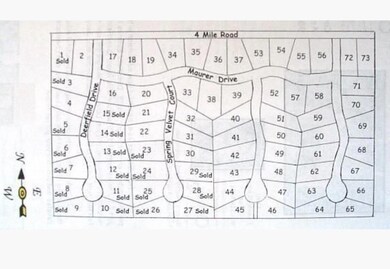 4 Mile Road
1 Sold 2 17 18 19 34 35 36 37 53 54 55 56 72 73
Maurer Drive
Sold 3 16 20 33 38 39 52 57 58 71
4 70
Deerfield Drive
Spring Velvet Court
15 Sold 21 32 40 51 59
5 Sold 14 22 31 41 50 60 69
6 Sold 13 Sold 23 30 42 49 61 68
Sold 7 12 Sold 24 29 Sold 43 48 62 67
8 Sold 11 Sold 25 28 Sold 44 47 63 66
Sold 9 10 Sold 26 27 Sold 45 46 64 65
N
W E